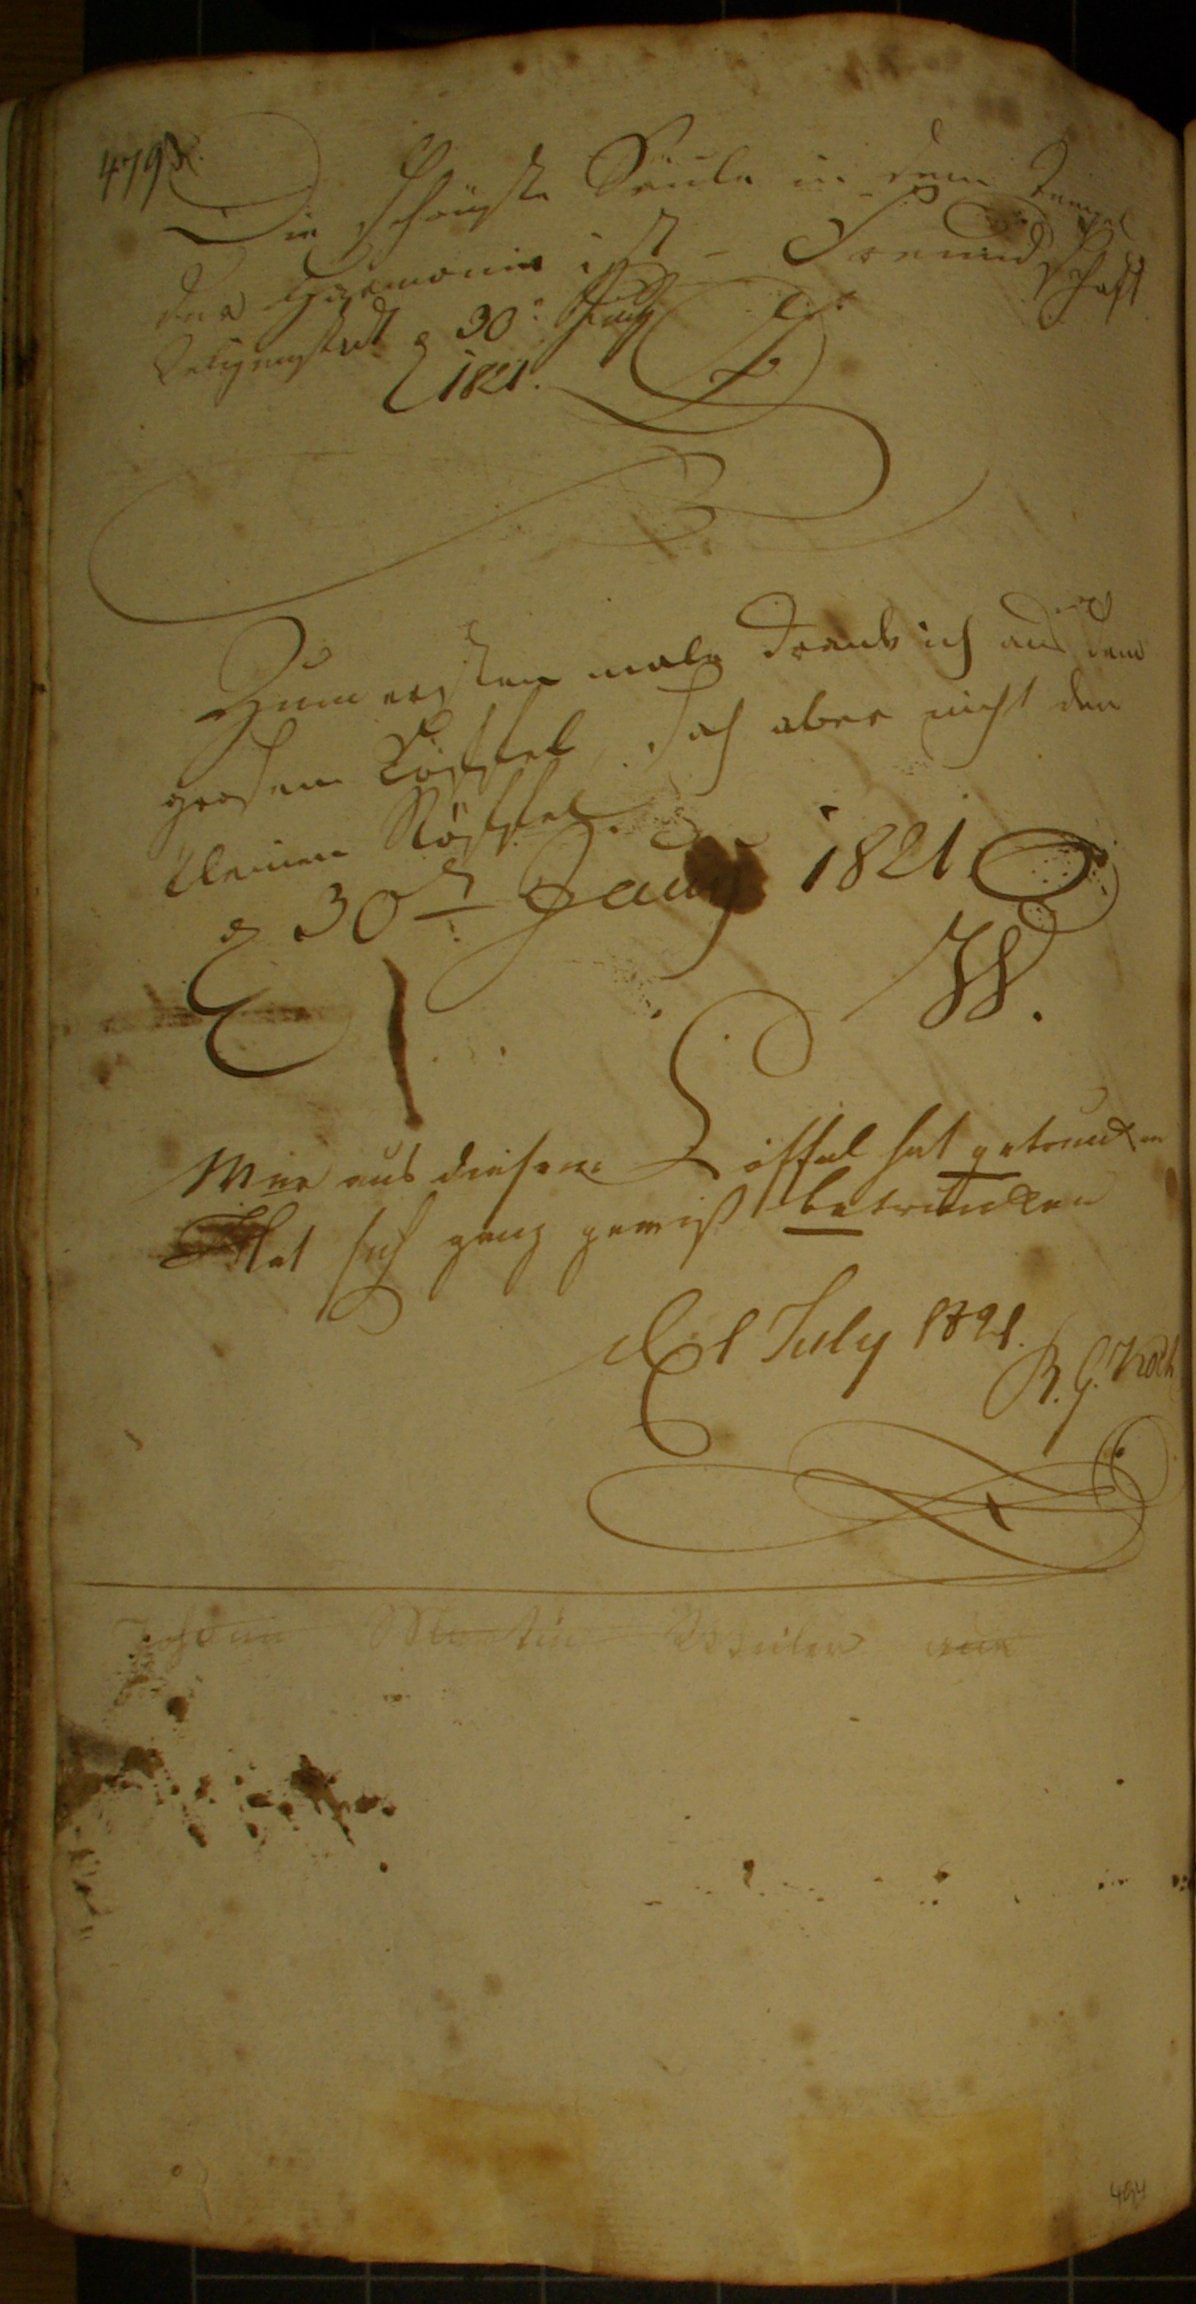 479
Die schönste Säule in dem Tempel
der Harmonie ist - Freundschaft
Seligenstadt d 30t July
1821.
Zum ersten male trank ich aus dem
großen Löffel, doch aber nicht den
kleinen Röffel.
d 30t July 1821
Wer aus diesem Löffel hat getruncken
Hat sich ganz gewiß betruncken
d 1 July 1821.
R. G. Koch
Johann Martin Weiler aus
494